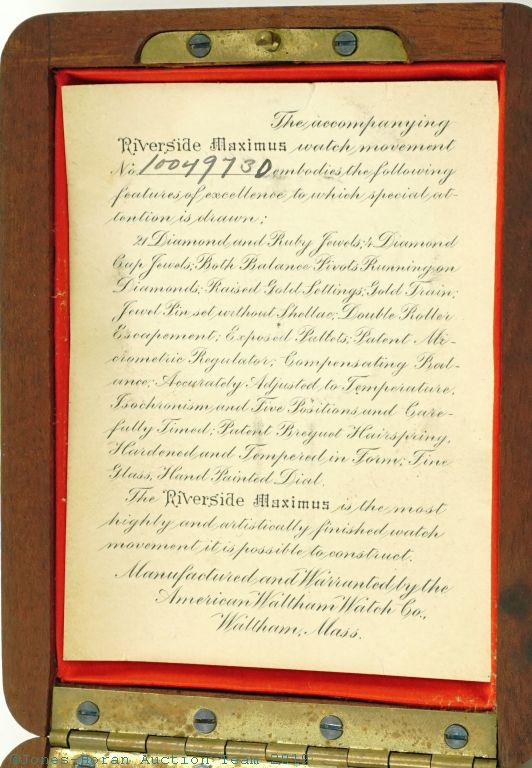 The accompanying
Riverside Maximus watch movement
No. 10049730 embodies the following
features of excellence to which special at-
tention is drawn:
21 Diamond and Ruby Jewels; 4 Diamond
Cap Jewels; Both Balance Pivots Running on
Diamonds; Raised Gold Settings; Gold Train;
Jewel Pin set without Shellac; Double Roller
Escapement; Exposed Pallets; Patent Mi-
crometric Regulator; Compensating Bal-
ance; Accurately Adjusted to Temperature,
Isochronism and Five Positions and Care-
fully Timed; Patent Breguet Hairspring,
Hardened and Tempered in Form; Fine
Glass, Hand Painted Dial.
The Riverside Maximus is the most
highly and artistically finished watch
movement it is possible to construct.
Manufactured and Warranted by the
American Waltham Watch Co.,
Waltham, Mass.
©Jones-Horan Auction Team